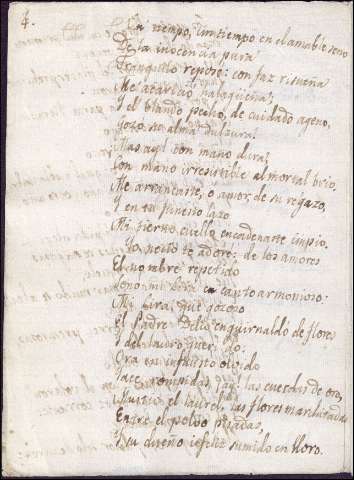 4.
Un tiempo, un tiempo en el amable seno
De la inocencia pura
Tranquilo reposé: con faz risueña
Me acarició halagüeña;
Y el blando pecho, de cuidado ageno,
Gozó su alma dulzura:
Mas ay! con mano dura,
Con mano irresistible al mortal brio,
Me arrancaste, ó amor, de su regazo,
Y en tu funesto lazo
Mi tierno cuello encadenaste impio.
Yo necio te adoré: de los amores
El nombre repetido
Sonó mi lira en canto armonioso:
Mi lira, que gozoso
El padre Delio enguirnaldó de flores
Y del lauro querido:
Ora en infausto olvido
Yace, rompidas, ay! las cuerdas de oro,
Mustio el laurel, las flores marchitadas
Entre el polvo pisadas,
Y su dueño infeliz sumido en lloro.